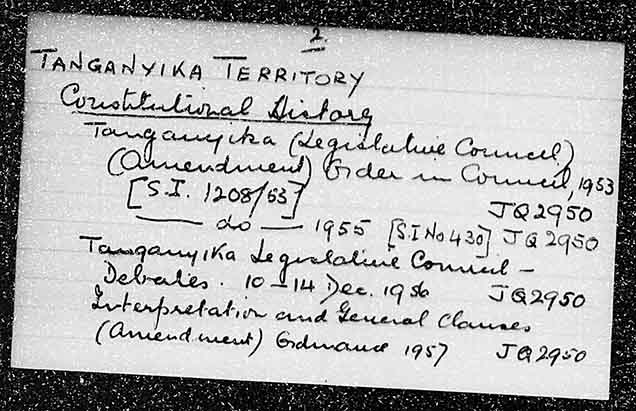 2.
TANGANYIKA TERRITORY
Constitutional History
Tanganyika (Legislative Council)
(Amendment) Order in Council, 1953
[S.I. 1208/53] JQ2950
—— do —— 1955 [SI No 430] JQ2950
Tanganyika Legislative Council –
Debates. 10–14 Dec. 1956 JQ2950
Interpretation and General Clauses
(Amendment) Ordinance 1957 JQ2950